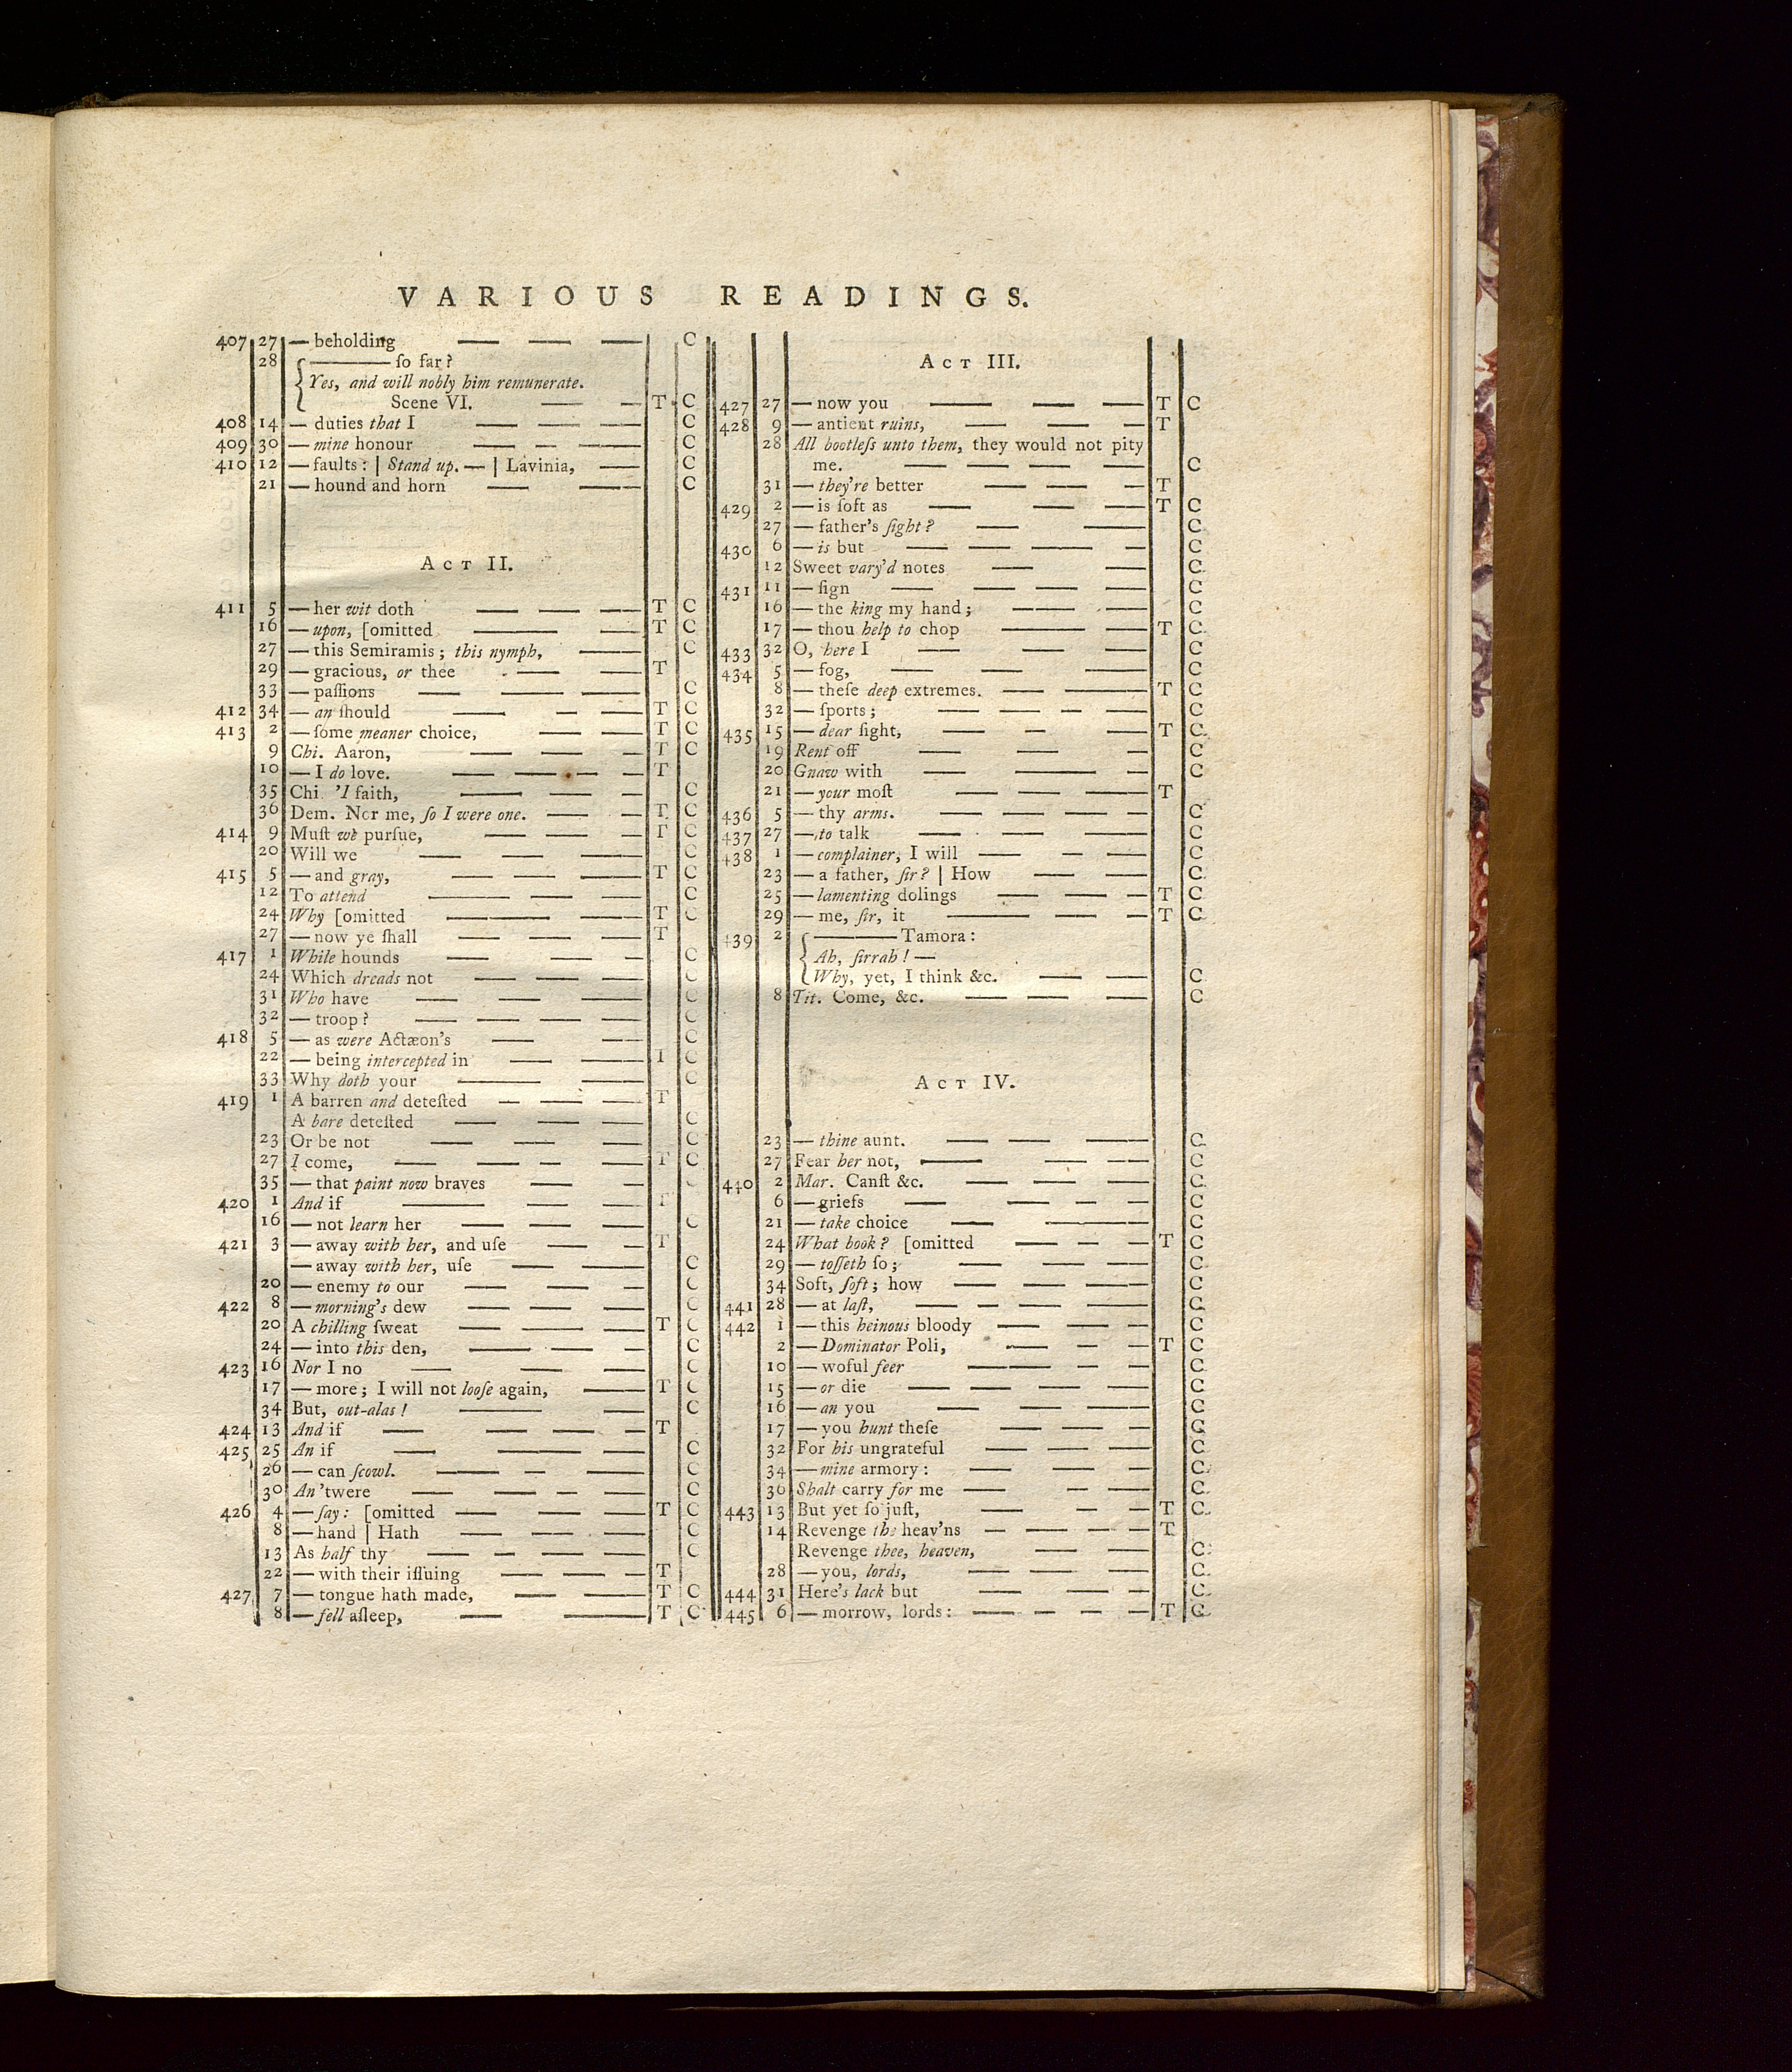 VARIOUS READINGS.
407 27 — beholding — — — C
28 { ——— ſo far?
Yes, and will nobly him remunerate.
Scene VI. — — T C
408 14 — duties that I — — — C
409 30 — mine honour — — — C
410 12 — faults: | Stand up. — | Lavinia, — C
21 — hound and horn — — C
Act II.
411 5 — her wit doth — — — T C
16 — upon, [omitted — — T C
27 — this Semiramis; this nymph, — C
29 — gracious, or thee — — T
33 — paſſions — — — C
412 34 — an ſhould — — — T C
413 2 — ſome meaner choice, — — T C
9 Chi. Aaron, — — — T C
10 — I do love. — — — — T
35 Chi. 'I faith, — — — C
36 Dem. Nor me, ſo I were one. — — T C
414 9 Muſt we purſue, — — — T C
20 Will we — — — C
415 5 — and gray, — — — T C
12 To attend — — — C
24 Why [omitted — — — T C
27 — now ye ſhall — — — T
417 1 While hounds — — — — C
24 Which dreads not — — — C
31 Who have — — — — C
32 — troop? — — — — C
418 5 — as were Actæon's — — C
22 — being intercepted in — — T C
33 Why doth your — — C
419 1 A barren and deteſted — — — T
A bare deteſted — — — C
23 Or be not — — — C
27 I come, — — — — T C
35 — that paint now braves — — C
420 1 And if — — — T
16 — not learn her — — — — C
421 3 — away with her, and uſe — — T
— away with her, uſe — — C
20 — enemy to our — — — C
422 8 — morning's dew — — — — C
20 A chilling ſweat — — — — T C
24 — into this den, — — — C
423 16 Nor I no — — — C
17 — more; I will not looſe again, — T C
34 But, out-alas! — — C
424 13 And if — — — — T
425 25 An if — — — C
26 — can ſcowl. — — — C
30 An 'twere — — — — C
426 4 — ſay: [omitted — — — T C
8 — hand | Hath — — — — C
13 As half thy — — — — C
22 — with their iſſuing — — — T
427 7 — tongue hath made, — — — T C
8 — fell aſleep, — — T C
Act III.
427 27 — now you — — — T C
428 9 — antient ruins, — — — T
28 All bootleſs unto them, they would not pity
me. — — — — C
31 — they're better — — — T
429 2 — is ſoft as — — — T C
27 — father's ſight? — — C
430 6 — is but — — — — C
12 Sweet vary'd notes — — C
431 11 — ſign — — — — C
16 — the king my hand; — — — C
17 — thou help to chop — — T C
433 32 O, here I — — — C
434 5 — fog, — — — C
8 — theſe deep extremes. — — T C
32 — ſports; — — — — C
435 15 — dear ſight, — — — T C
19 Rent off — — — C
20 Gnaw with — — — C
21 — your moſt — — — — T
436 5 — thy arms. — — — — C
437 27 — to talk — — — — C
438 1 — complainer, I will — — — C
23 — a father, ſir? | How — — C
25 — lamenting dolings — — — T C
29 — me, ſir, it — — — T C
439 2 { ——— Tamora:
Ah, ſirrah! —
Why, yet, I think &c. — — C
8 Tit. Come, &c. — — — C
Act IV.
23 — thine aunt. — — — C
27 Fear her not, — — — C
440 2 Mar. Canſt &c. — — — C
6 — griefs — — — — C
21 — take choice — — C
24 What book? [omitted — — — T C
29 — toſſeth ſo; — — — C
34 Soft, ſoft; how — — — — C
441 28 — at laſt, — — — — C
442 1 — this heinous bloody — — — C
2 — Dominator Poli, — — — T C
10 — woful feer — — — C
15 — or die — — — — C
16 — an you — — — — C
17 — you hunt theſe — — — C
32 For his ungrateful — — — C
34 — mine armory: — — — C
36 Shalt carry for me — — — C
443 13 But yet ſo juſt, — — — T C
14 Revenge the heav'ns — — — — T
Revenge thee, heaven, — — C
28 — you, lords, — — — C
444 31 Here's lack but — — — C
445 6 — morrow, lords: — — — — T C